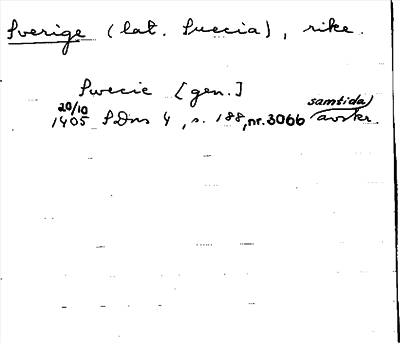 Sverige (lat. Suecia), rike.
Swecie [gen.]
20/10 samtida
1405 SDns 4, s. 188, nr. 3066 avskr.